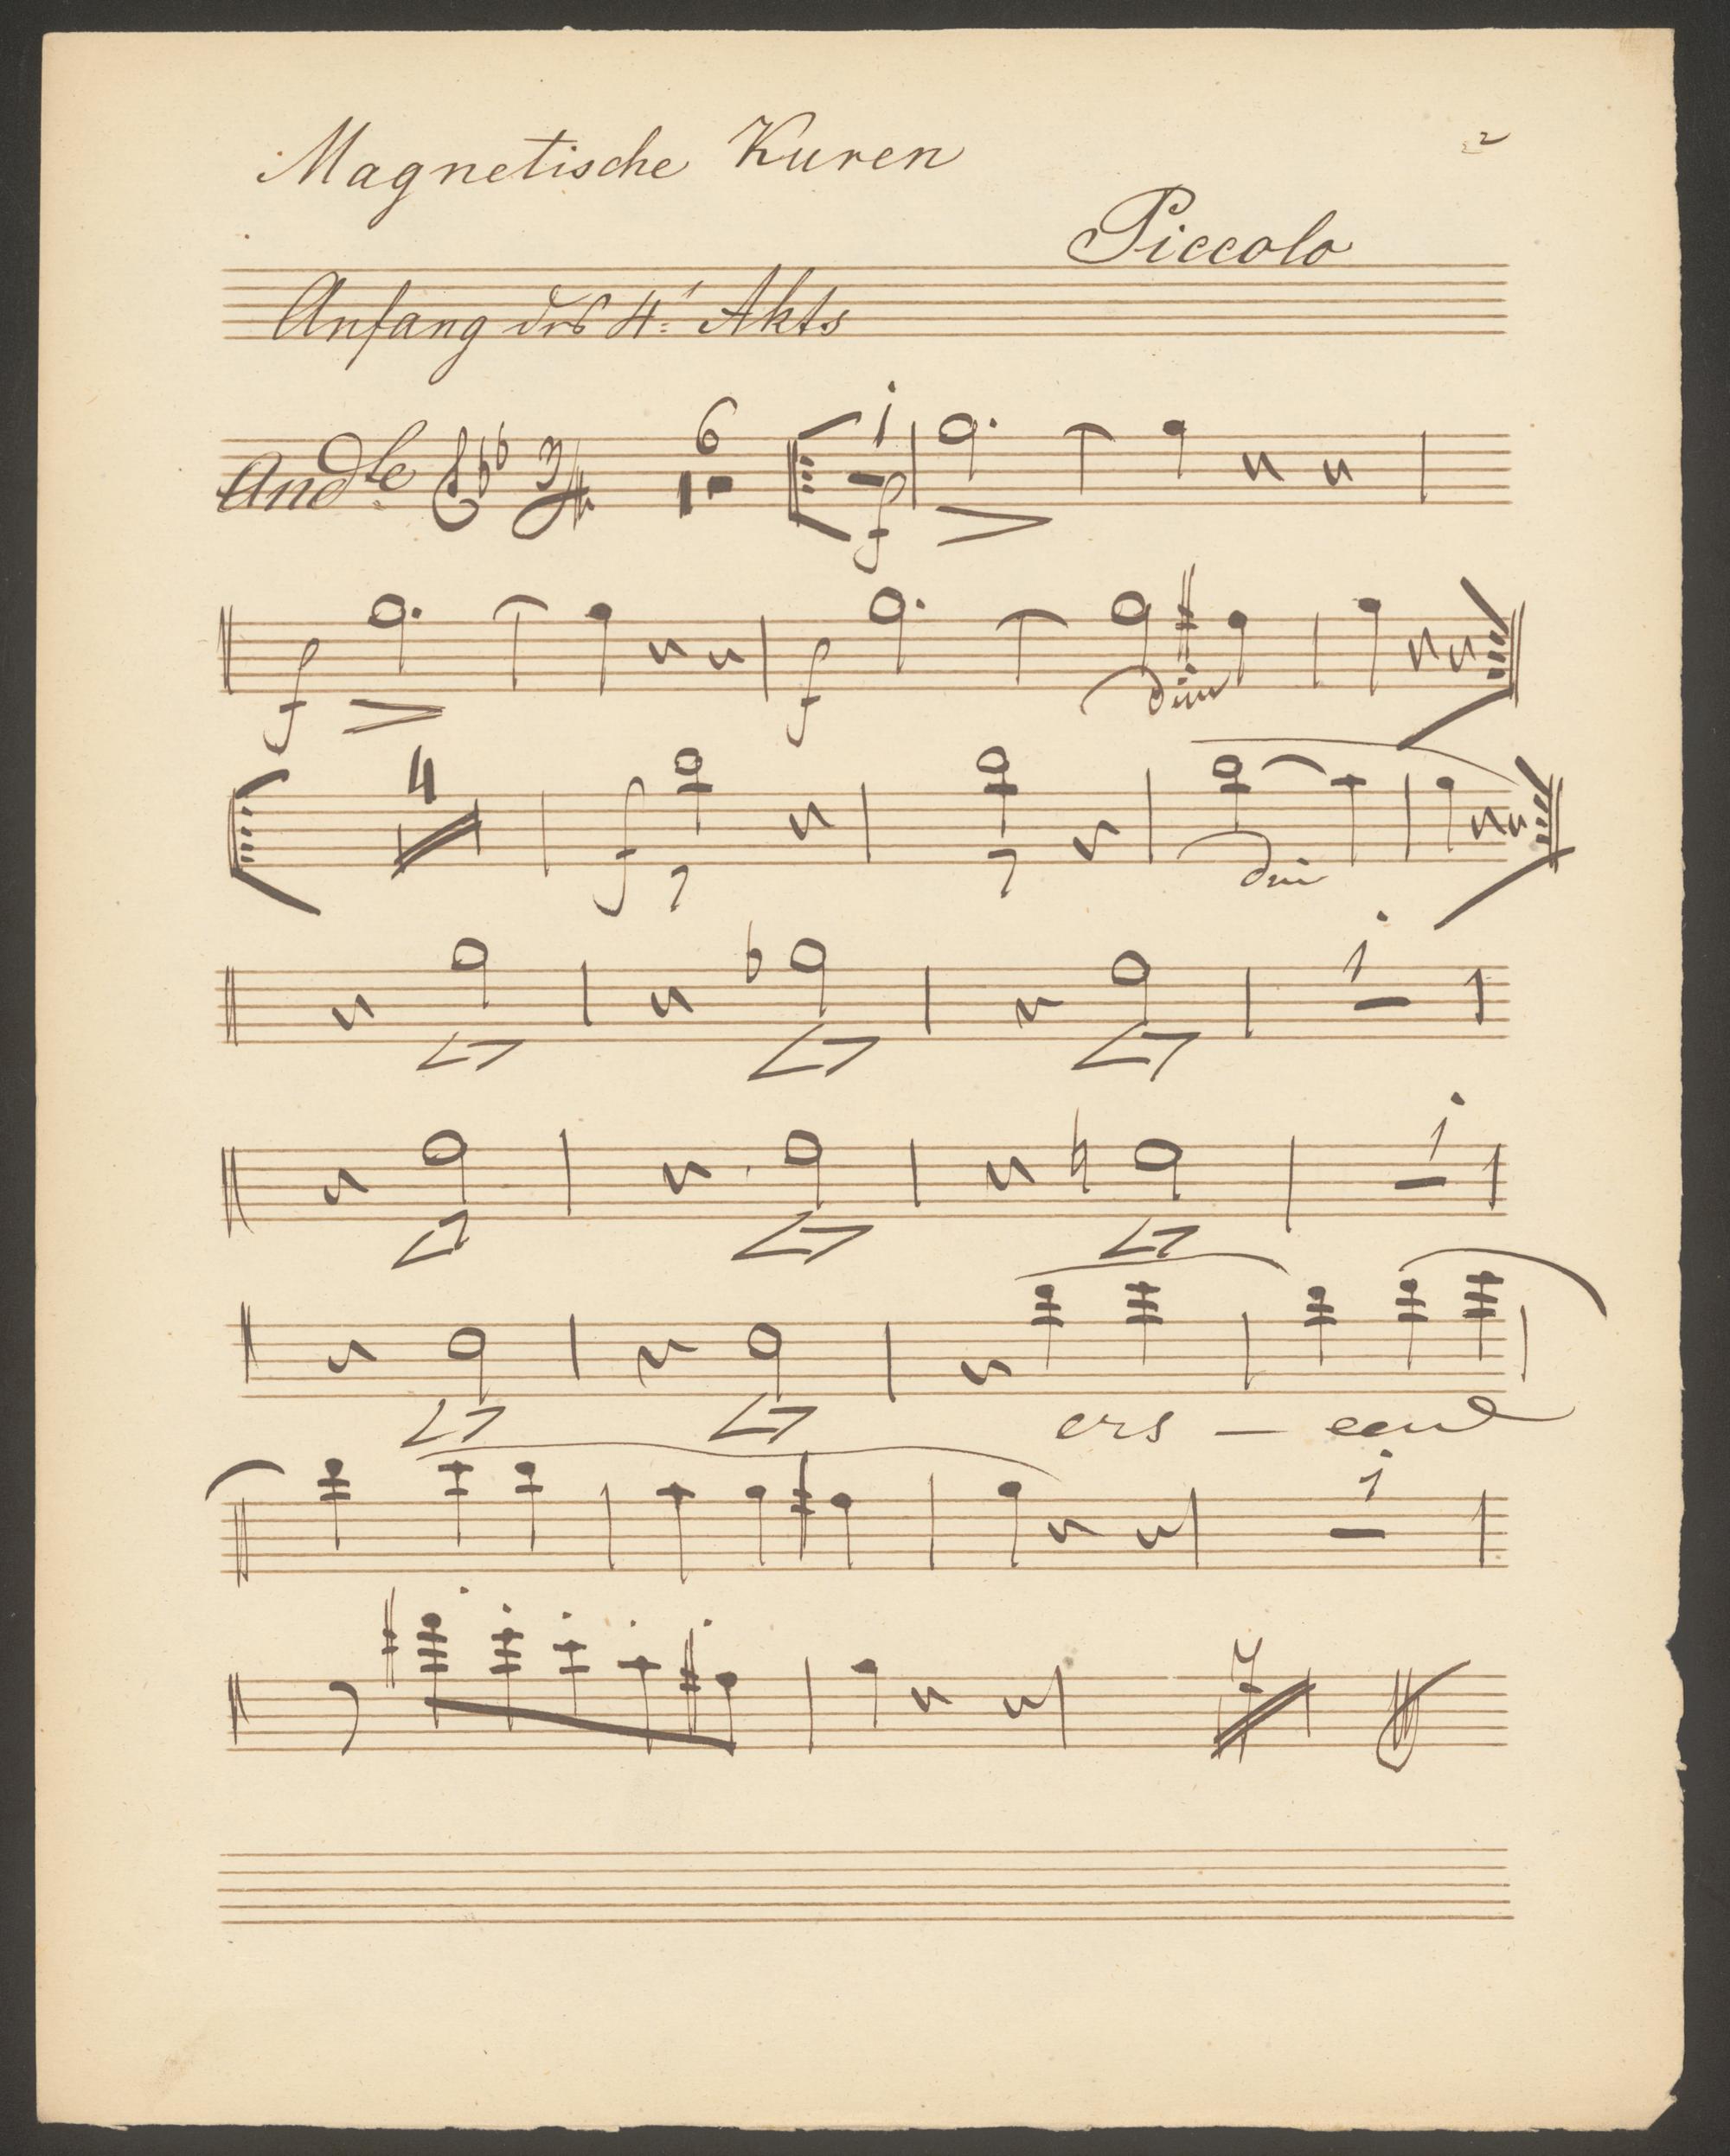 Magnetische Kuren
2
Piccolo
Anfang des 4. Akts
And.le 3/4 6 1 f
f f dim
4 f dim
1
1
cres — cend
1
7